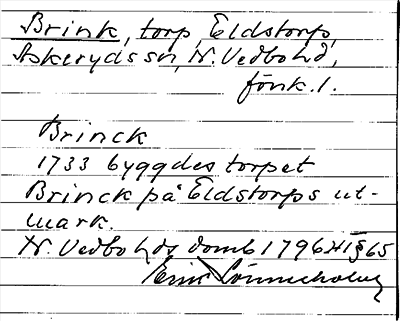 Brink, torp Eldstorp,
Askeryds sn, N. Vedbo hd,
Jönk. l.
Brinck
1733 byggdes torpet
Brinck på Eldstorps ut-
mark.
N. Vedbo hds domb 1796 HT § 65
Erik Lönnerholm